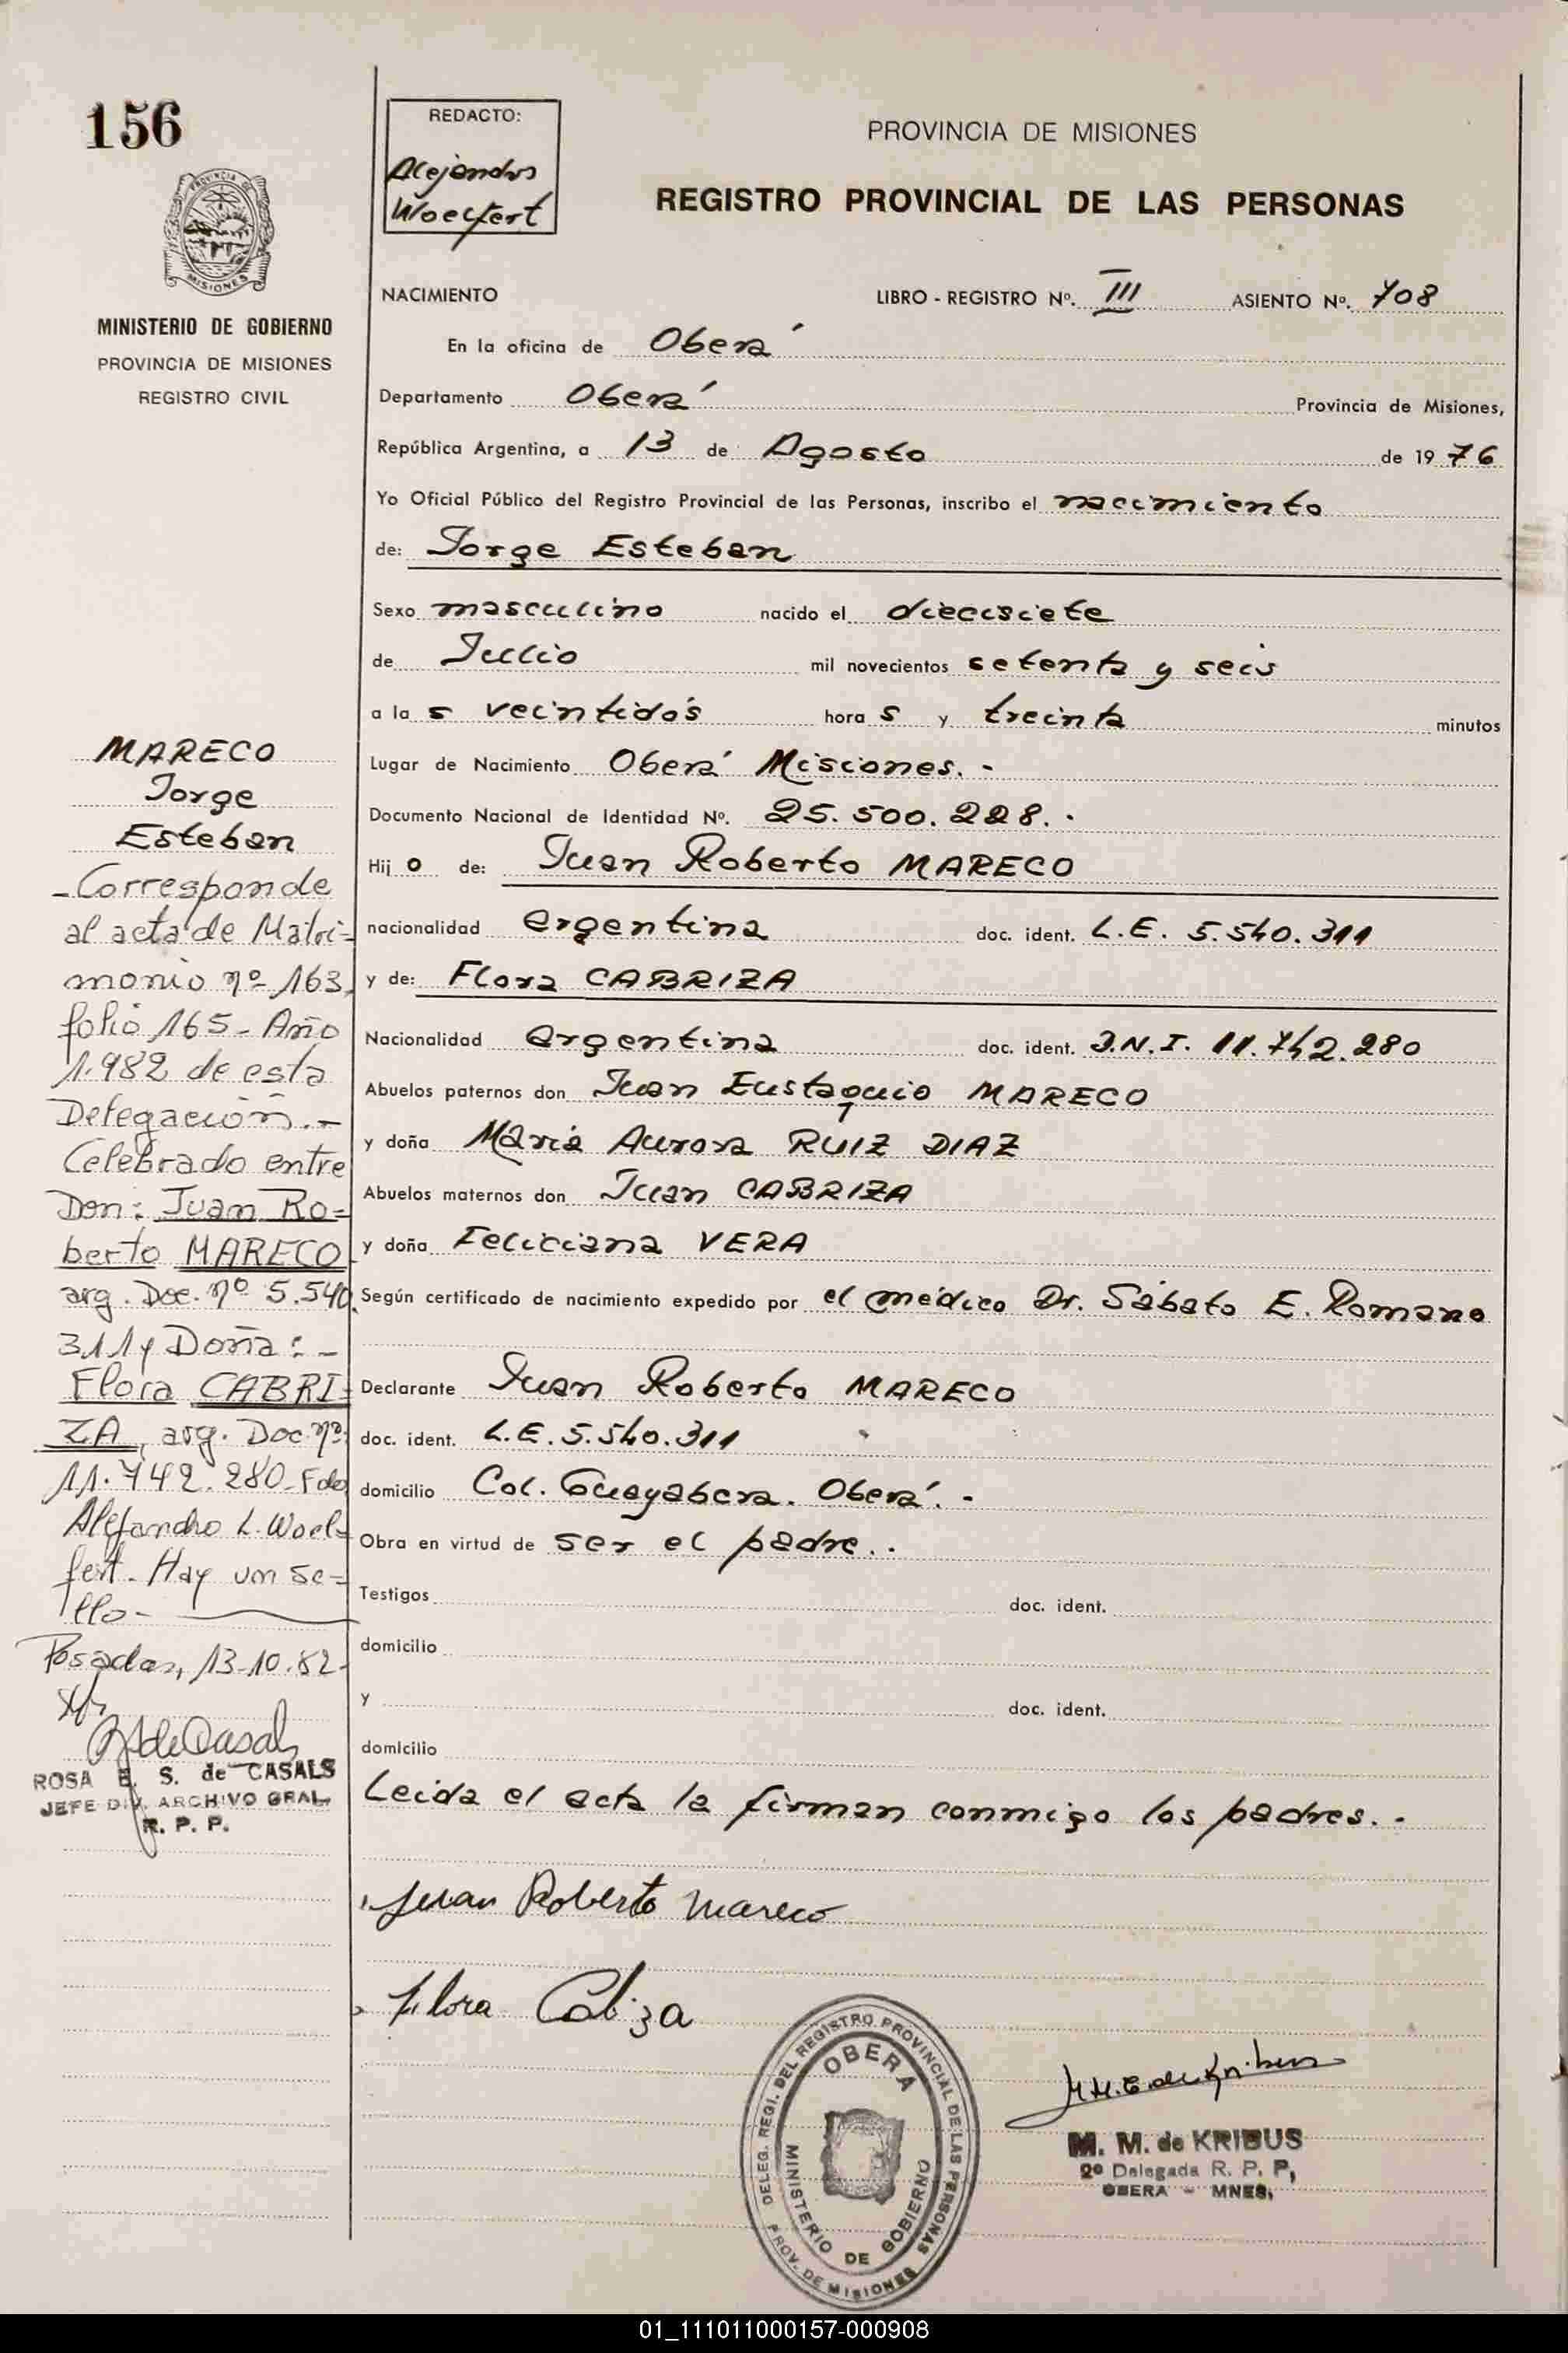 156
PROVINCIA DE
MISIONES
MINISTERIO DE GOBIERNO
PROVINCIA DE MISIONES
REGISTRO CIVIL
REDACTO:
Alejandro
Woelfert
PROVINCIA DE MISIONES
REGISTRO PROVINCIAL DE LAS PERSONAS
NACIMIENTO LIBRO - REGISTRO Nº. III ASIENTO Nº. 708
En la oficina de Oberá
Departamento Oberá Provincia de Misiones,
República Argentina, a 13 de Agosto de 1976
Yo Oficial Público del Registro Provincial de las Personas, inscribo el nacimiento
de: Jorge Esteban
Sexo masculino nacido el diecisiete
de Julio mil novecientos setenta y seis
a la s veintidós hora s y treinta minutos
Lugar de Nacimiento Oberá Misiones. -
Documento Nacional de Identidad Nº. 25.500.228. -
Hij o de: Juan Roberto MARECO
nacionalidad argentina doc. ident. L.E. 5.540.311
y de: Flora CABRIZA
Nacionalidad argentina doc. ident. D.N.I. 11.742.280
Abuelos paternos don Juan Eustaquio MARECO
y doña María Aurora RUIZ DIAZ
Abuelos maternos don Juan CABRIZA
y doña Feliciana VERA
Según certificado de nacimiento expedido por el médico Dr. Sábato E. Romano
Declarante Juan Roberto MARECO
doc. ident. L.E. 5.540.311
domicilio Col. Guayabera. Oberá. -
Obra en virtud de ser el padre. .
Testigos doc. ident.
domicilio
y doc. ident.
domicilio
Leida el acta la firman conmigo los padres. -
Juan Roberto Mareco
Flora Cabiza
MARECO
Jorge
Esteban
- Corresponde
al acta de Matri=
monio nº 163,
folio 165 - Año
1.982 de esta
Delegación. -
Celebrado entre
Don: Juan Ro=
berto MARECO
arg. Doc. nº 5.540.
311 y Doña: -
Flora CABRI=
ZA, arg. Doc. nº:
11.742.280 - Fdo
Alejandro L. Woel=
fert - Hay un se=
llo -
Posadas, 13-10-82 -
R S de Casals
ROSA E. S. de CASALS
JEFE DIV. ARCHIVO GRAL.
R. P. P.
DELEG. REGI. DEL REGISTRO PROVINCIAL DE LAS PERSONAS
PROV. DE MISIONES
OBERA
MINISTERIO DE GOBIERNO
M. M. de Kribus
M. M. de KRIBUS
2º Delegada R. P. P,
OBERA - MNES,
01_111011000157-000908